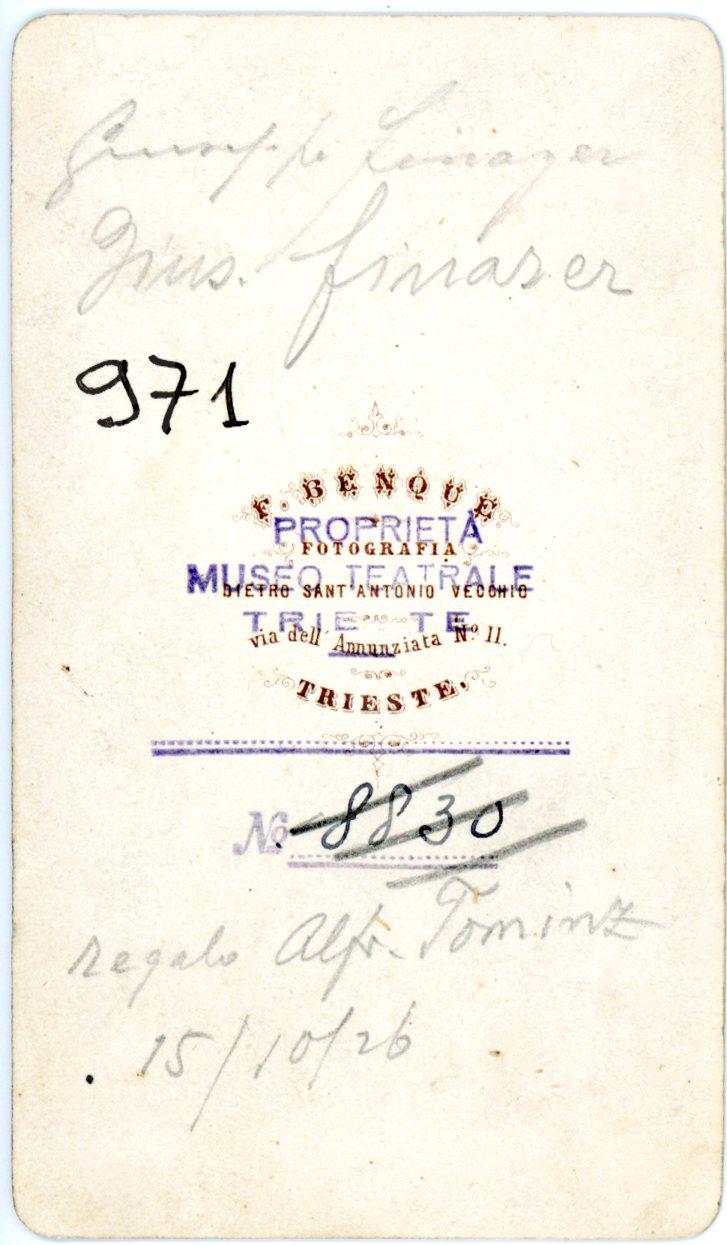 Giuseppe Finazer
Gius. Finazer
971
F. BENQUE
PROPRIETÀ
FOTOGRAFIA
MUSEO TEATRALE
DIETRO SANT'ANTONIO VECCHIO
TRIE TE
via dell'Annunziata No. 11.
TRIESTE.
No 8830
regalo Alfr. Tominz
15/10/26